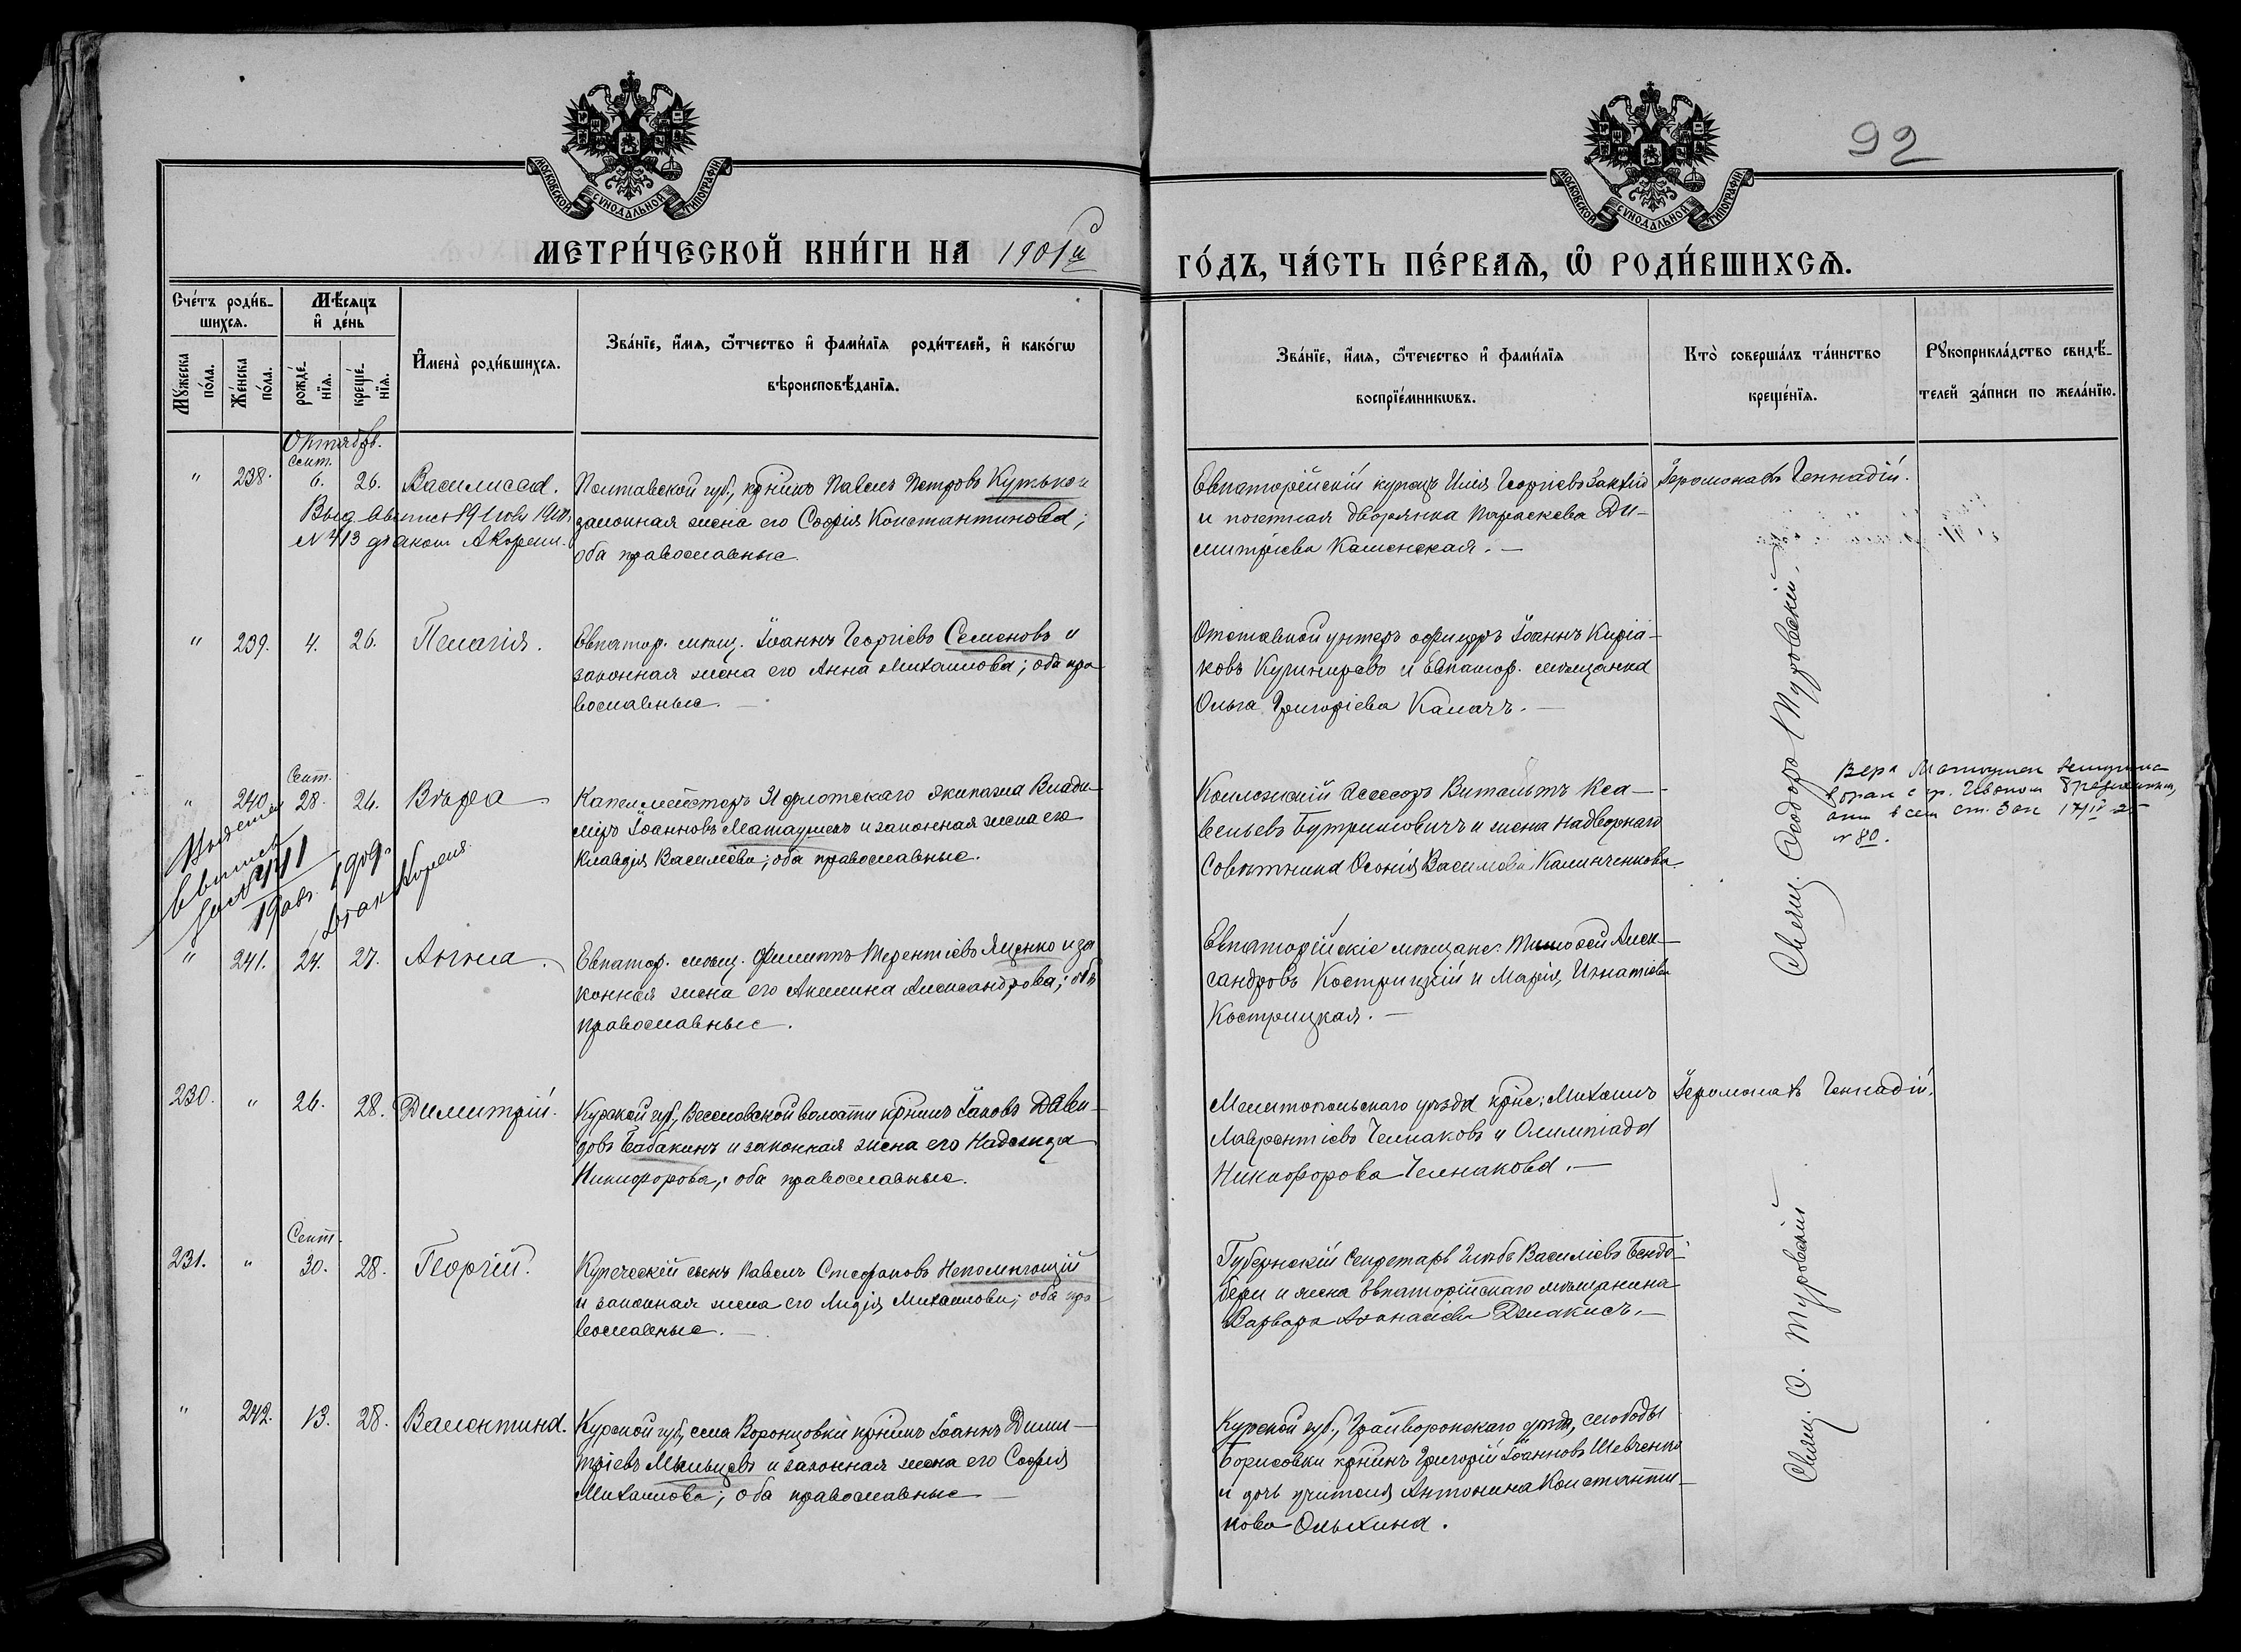 92
МОСКОВСКОЙ СѴНОДАЛЬНОЙ ТИПОГРАФІИ
МОСКОВСКОЙ СѴНОДАЛЬНОЙ ТИПОГРАФІИ
МЕТРИ́ЧЕСКОЙ КНИ́ГИ НА 1901й
ГО́ДЪ, ЧА́СТЬ ПЕ́РВАѦ, Ѡ РОДИ́ВШИХСѦ.
Сче́тъ роди́в-
шихсѧ.
Мѣ́сѧцъ
и҆ де́нь
Мꙋ́жеска
по́ла.
Же́нска
по́ла.
рожде́-
нїѧ.
креще́-
нїѧ.
И҆мена̀ роди́вшихсѧ.
Зва́нїе, и҆́мѧ, ѻ҆́тчество и҆ фами́лїѧ роди́телей, и҆ како́гѡ
вѣроисповѣ́данїѧ.
Зва́нїе, и҆́мѧ, ѻ҆́течество и҆ фами́лїѧ
воспрїе́мникѡвъ.
Кто̀ соверша́лъ та́инство
креще́нїѧ.
Рꙋкоприкла́дство свидѣ́-
телей за́писи по жела́нїю.
Октябрь.
Сент.
" 238. 6. 26. Василисса. Полтавской губ., крнинъ Павелъ Петровъ Кутько и
законная жена его Софія Константинова;
оба православные.
Евпаторійскій купецъ Илія Георгіевъ
и дворянка Параскева Ди-
митріева Каменская. —
Іеромонахъ Геннадій.
№ 413
" 239. 4. 26. Пелагія. Евпатор. мѣщ. Іоаннъ Георгіевъ Семеновъ и
законная жена его Анна Михаилова; оба пра-
вославные. —
Отставной унтеръ офицеръ Іоаннъ Киріа-
ковъ и Евпатор. мѣщанка
Ольга Григоріева Калачъ. —
Сент.
" 240 28. 26. Вѣра Капельмейстеръ 31 флотскаго экипажа Влади-
міръ Іоанновъ Матаушекъ и законная жена его
Клавдія Василіева; оба православные.
Коллежскій Асессоръ Витольтъ Кса-
верьевъ Бутримовичъ и жена Надворнаго
Совѣтника Василіева Калинченкова.
Вера Матаушек вступила
в брак с гр. Иваном
№ 80.
Свящ. Ѳеодоръ Туровскій.
1909.
" 241. 24. 27. Анна. Евпатор. мѣщ. Филиппъ Терентіевъ Яценко и за-
конная жена его Акилина Александрова; оба
православные.
Евпаторійскіе мѣщане: Тимоѳей Алек-
сандровъ Кострицкій и Марія Игнатіева
Кострицкая. —
230. " 26. 28. Димитрій. Курской губ., Веселовской волости крнинъ Іаковъ Дави-
довъ Бабакинъ и законная жена его Надежда
Никифорова; оба православные.
Мелитопольскаго уѣзда крне: Михаилъ
Лаврентіевъ Челнаковъ и Олимпіада
Никифорова Челнакова. —
Іеромонахъ Геннадій.
Сент.
231. " 30. 28. Георгій. Купеческій сынъ Павелъ Стефановъ Непомнющій
и законная жена его Лидія Михаилова; оба пра-
вославные. —
Губернскій Секретарь Глѣбъ Василіевъ Бендо-
бери и жена Евпаторійскаго мѣщанина
Варвара Аѳанасіева —
" 242. 13. 28. Валентина. Курской губ., села Воронцовки крнинъ Іоаннъ Дими-
тріевъ Мальцевъ и законная жена его Софія
Михаилова; оба православные —
Курской губ., Грайворонскаго уѣзда, слободы
Борисовки крнинъ Григорій Іоанновъ Шевченко
и дочь учителя Антонина Константи-
нова Ольхина.
Свящ. Ѳ. Туровскій